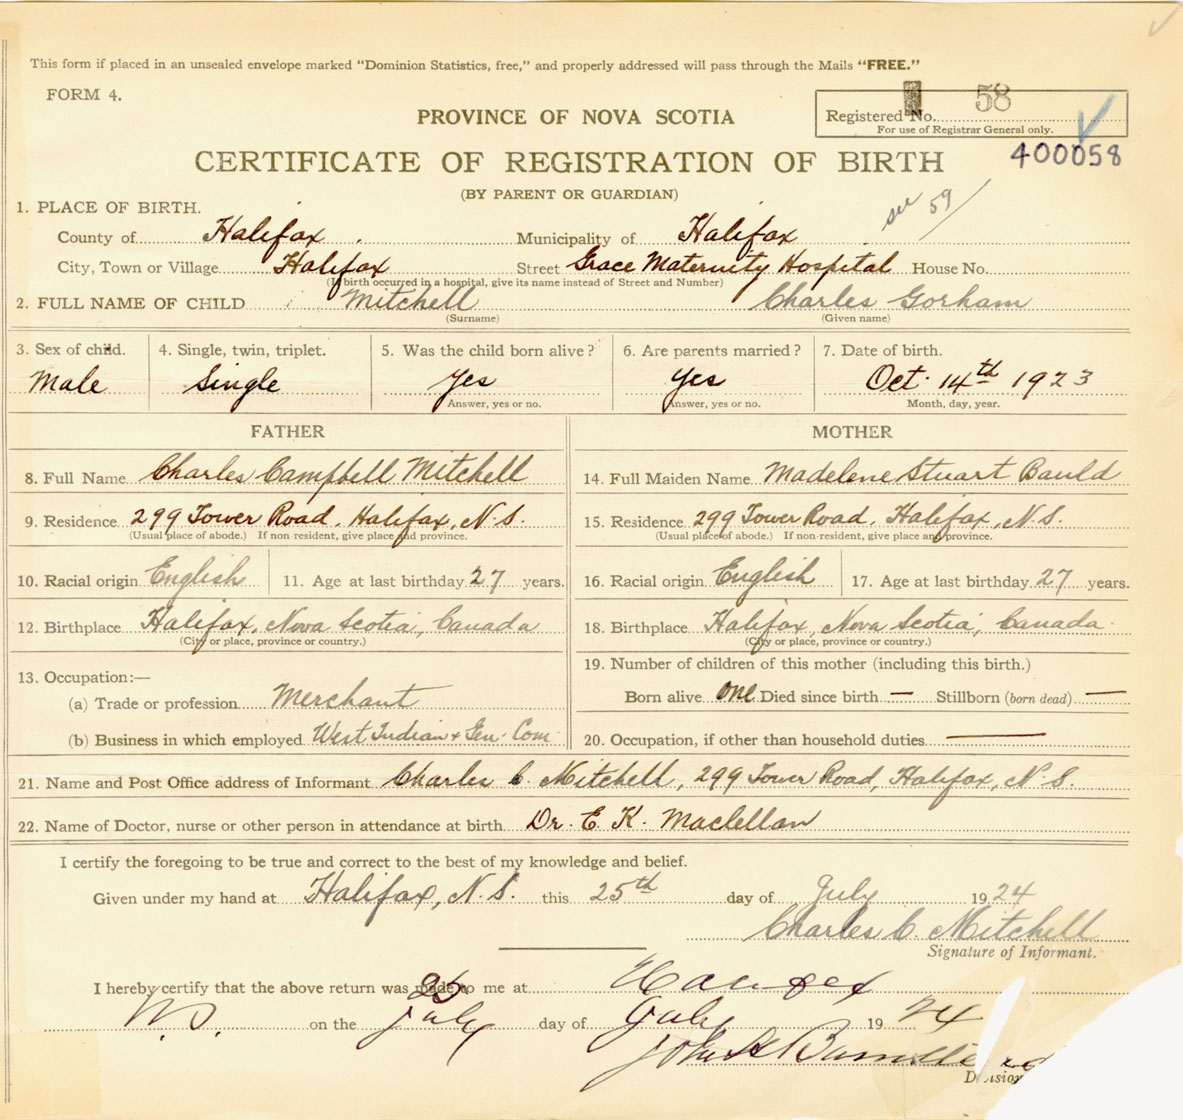 This form if placed in an unsealed envelope marked "Dominion Statistics, free," and properly addressed will pass through the Mails "FREE."
FORM 4.
58
PROVINCE OF NOVA SCOTIA
Registered No.
For use of Registrar General only.
CERTIFICATE OF REGISTRATION OF BIRTH
400058
(BY PARENT OR GUARDIAN)
see 59
1. PLACE OF BIRTH.
County of Halifax Municipality of Halifax
City, Town or Village Halifax Street Grace Maternity Hospital House No.
(If birth occurred in a hospital, give its name instead of Street and Number)
2. FULL NAME OF CHILD Mitchell Charles Gorham
(Surname) (Given name)
3. Sex of child. 4. Single, twin, triplet. 5. Was the child born alive? 6. Are parents married? 7. Date of birth.
Male Single Yes Yes Oct. 14th 1923
Answer, yes or no. Answer, yes or no. Month, day, year.
FATHER MOTHER
8. Full Name Charles Campbell Mitchell 14. Full Maiden Name Madelene Stuart Bauld
9. Residence 299 Tower Road, Halifax, N.S. 15. Residence 299 Tower Road, Halifax, N.S.
(Usual place of abode.) If non-resident, give place and province. (Usual place of abode.) If non-resident, give place and province.
10. Racial origin English 11. Age at last birthday 27 years. 16. Racial origin English 17. Age at last birthday 27 years.
12. Birthplace Halifax, Nova Scotia, Canada 18. Birthplace Halifax, Nova Scotia, Canada
(City or place, province or country.) (City or place, province or country.)
13. Occupation:— 19. Number of children of this mother (including this birth.)
(a) Trade or profession Merchant Born alive One Died since birth — Stillborn (born dead) —
(b) Business in which employed West Indian & Gen. Com. 20. Occupation, if other than household duties —
21. Name and Post Office address of Informant Charles C. Mitchell, 299 Tower Road, Halifax, N.S.
22. Name of Doctor, nurse or other person in attendance at birth Dr. E. K. Maclellan
I certify the foregoing to be true and correct to the best of my knowledge and belief.
Given under my hand at Halifax, N.S. this 25th day of July 1924
Charles C. Mitchell
Signature of Informant.
I hereby certify that the above return was made to me at Halifax
N.S. on the 25 July day of July 1924
John